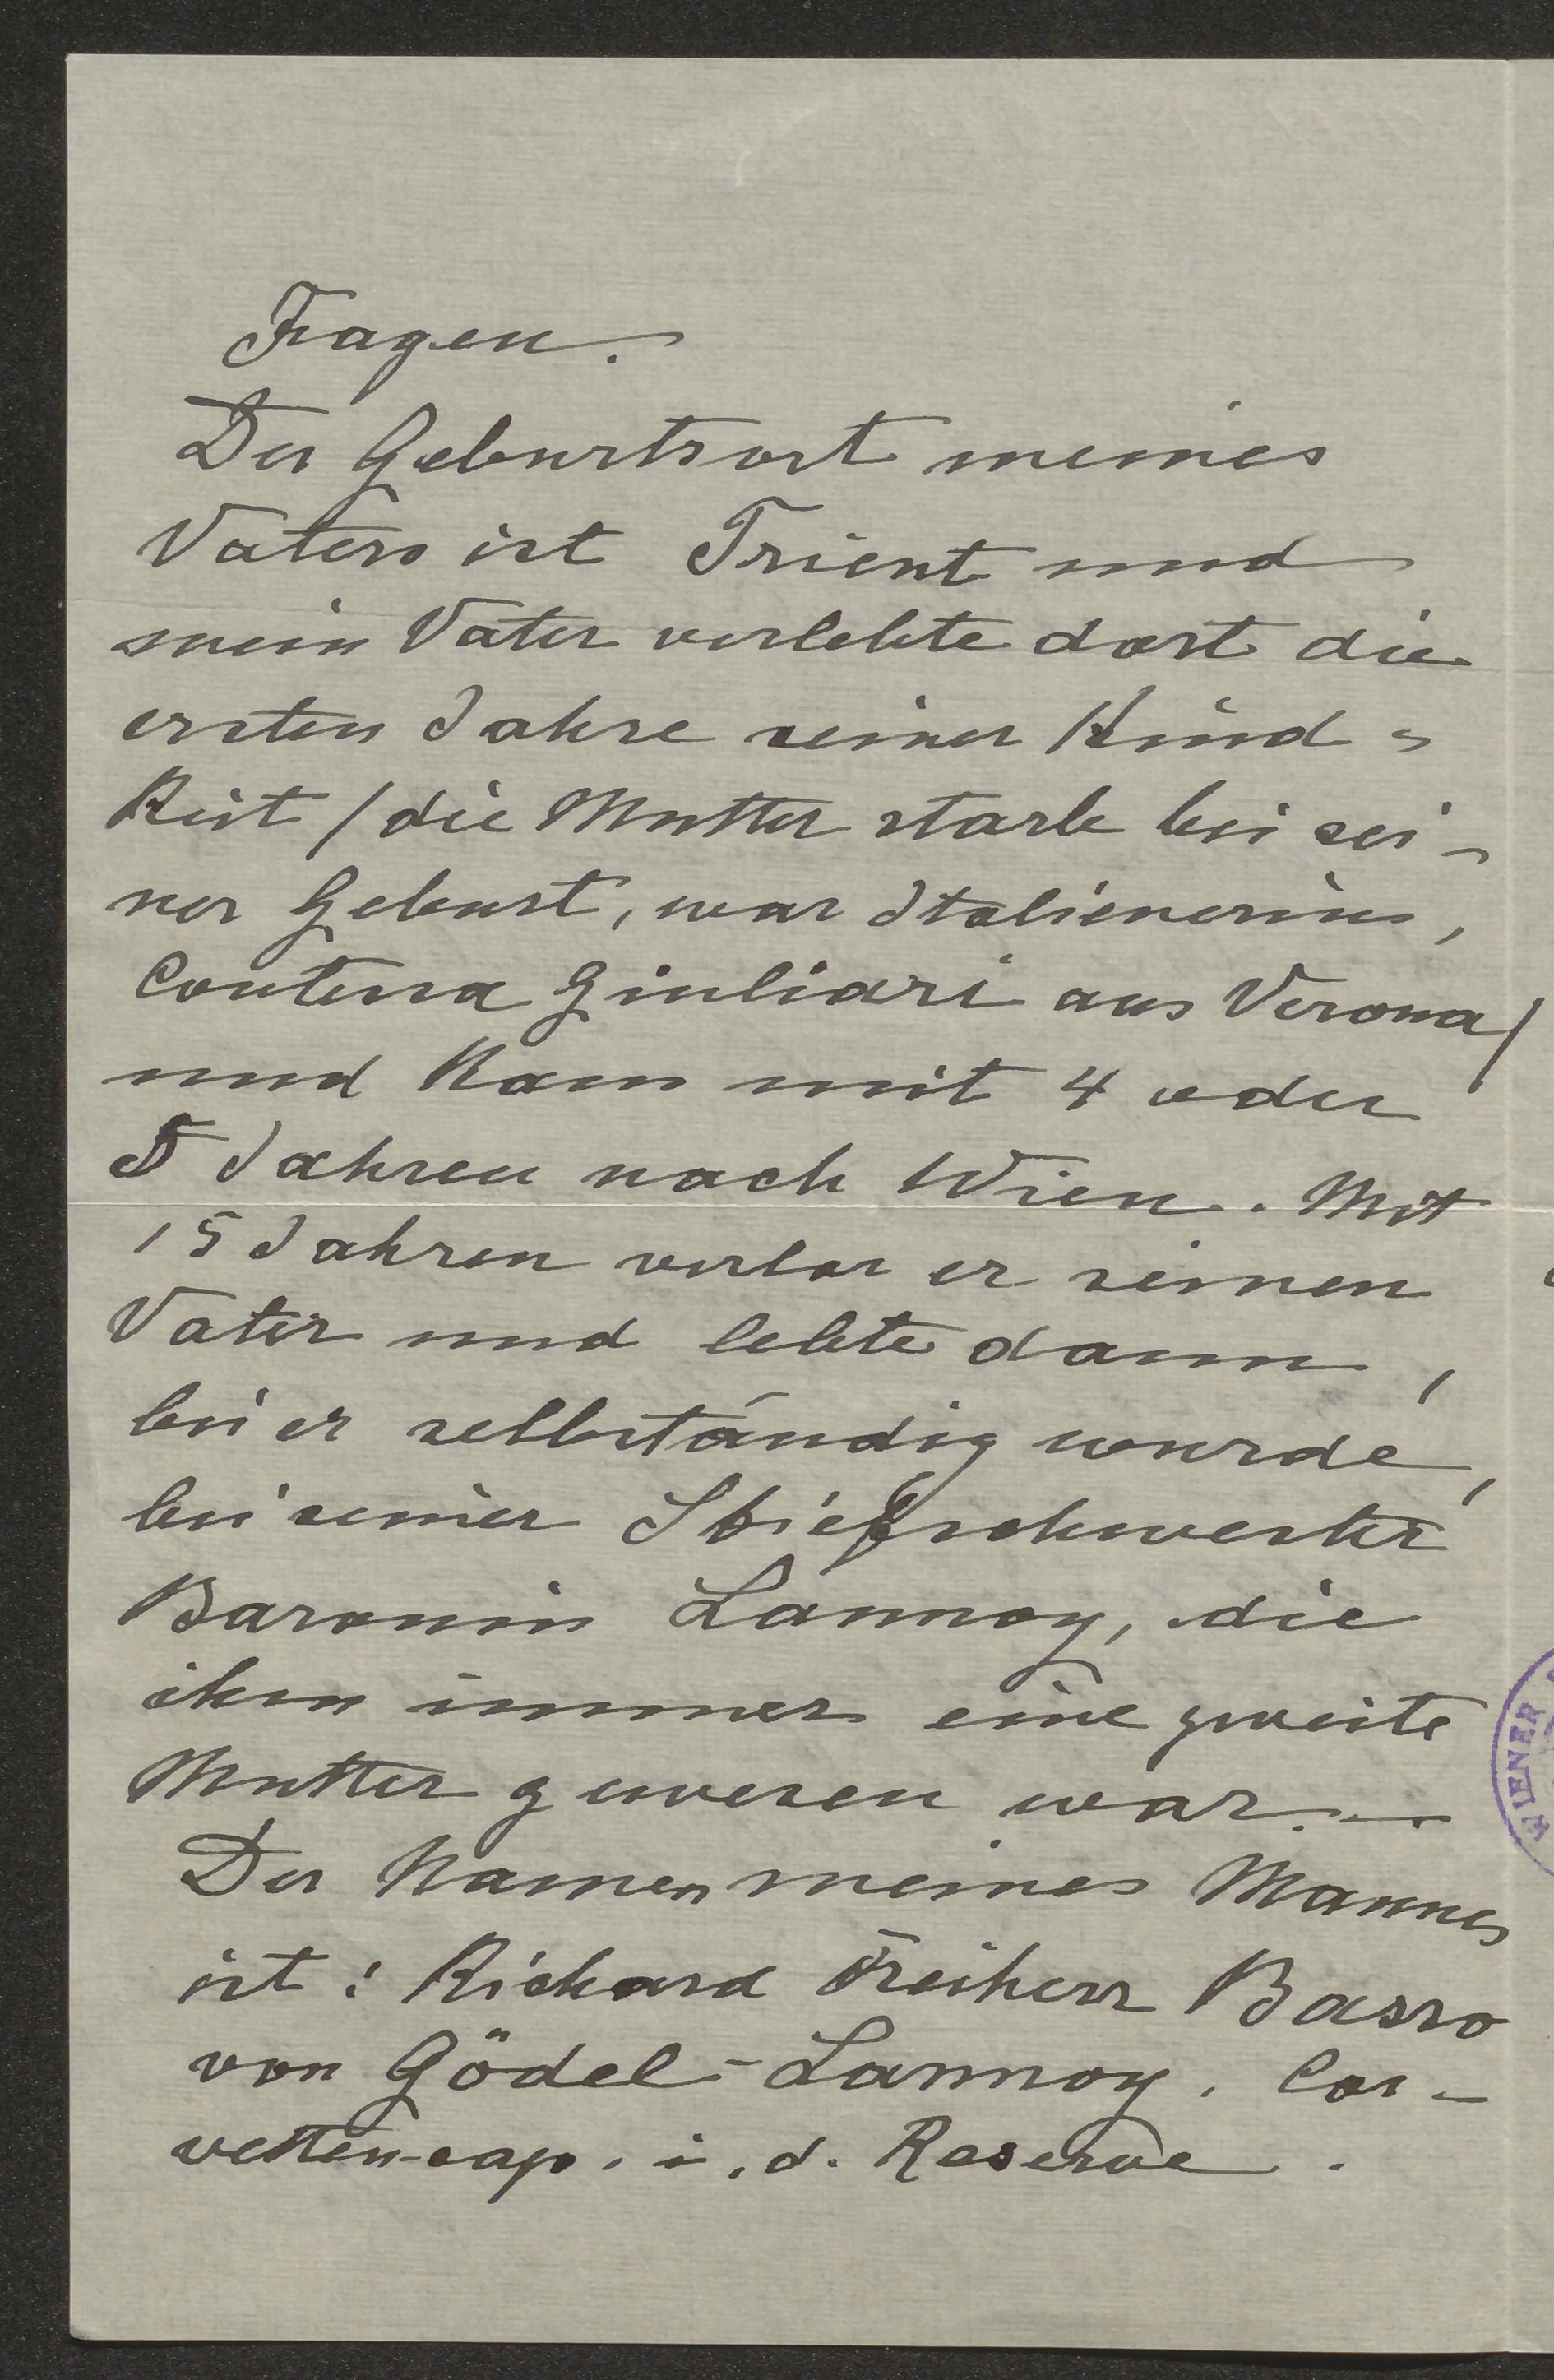 Fragen.
Der Geburtsort meines
Vaters ist Trient und
mein Vater verlebte dort die
ersten Jahre seiner Kind-
heit / die Mutter starb bei sei-
ner Geburt, war Italienerin,
Contessa Giuliari aus Verona /
und kam mit 4 oder
5 Jahren nach Wien. Mit
15 Jahren verlor er seinen
Vater und lebte dann,
bis er selbständig wurde,
bei seiner Stiefschwester
Baronin Lannoy, die
ihm immer eine zweite
Mutter gewesen war.—
Der Namen meines Mannes
ist: Richard Freiherr Basso
von Gödel-Lannoy. Cor-
vetten-cap. i. d. Reserve.
WIENER